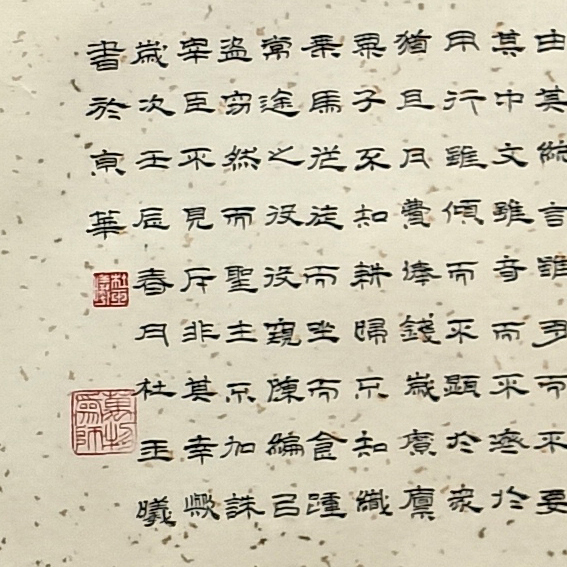 由其統言雖多而不要
其中文雖奇而不濟於
用行雖脩而不顯於衆
猶且月費俸錢歲廩
粟子不知耕婦不知織
乘馬從徒而坐而食踵
常途之役役窺陳編以
盜竊然而聖主不加誅
宰臣不見斥非其幸歟
歲次壬辰春月杜玉曦
書於京華
萬物為師